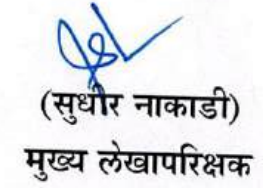 (सुधीर नाकाडी)
मुख्य लेखापरिक्षक